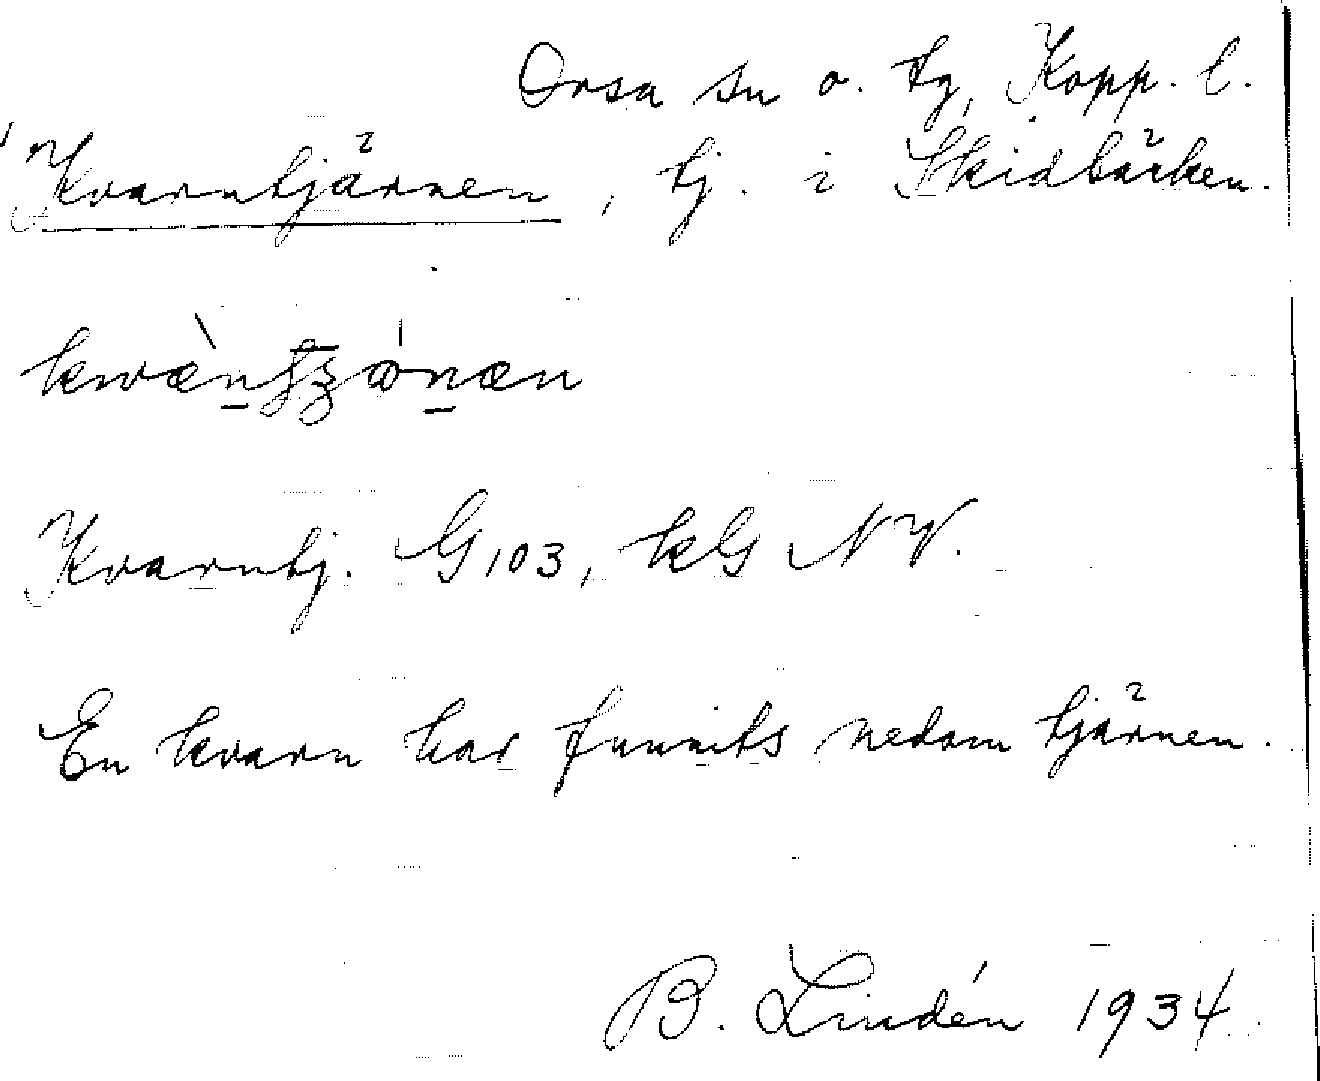 Orsa sn o. tg, Kopp. l.
Kvarntjärnen, tj. i Skidbäcken.
Kvarntj. G103, kG NV.
En kvarn har funnits nedom tjärnen.
B. Lindén 1934